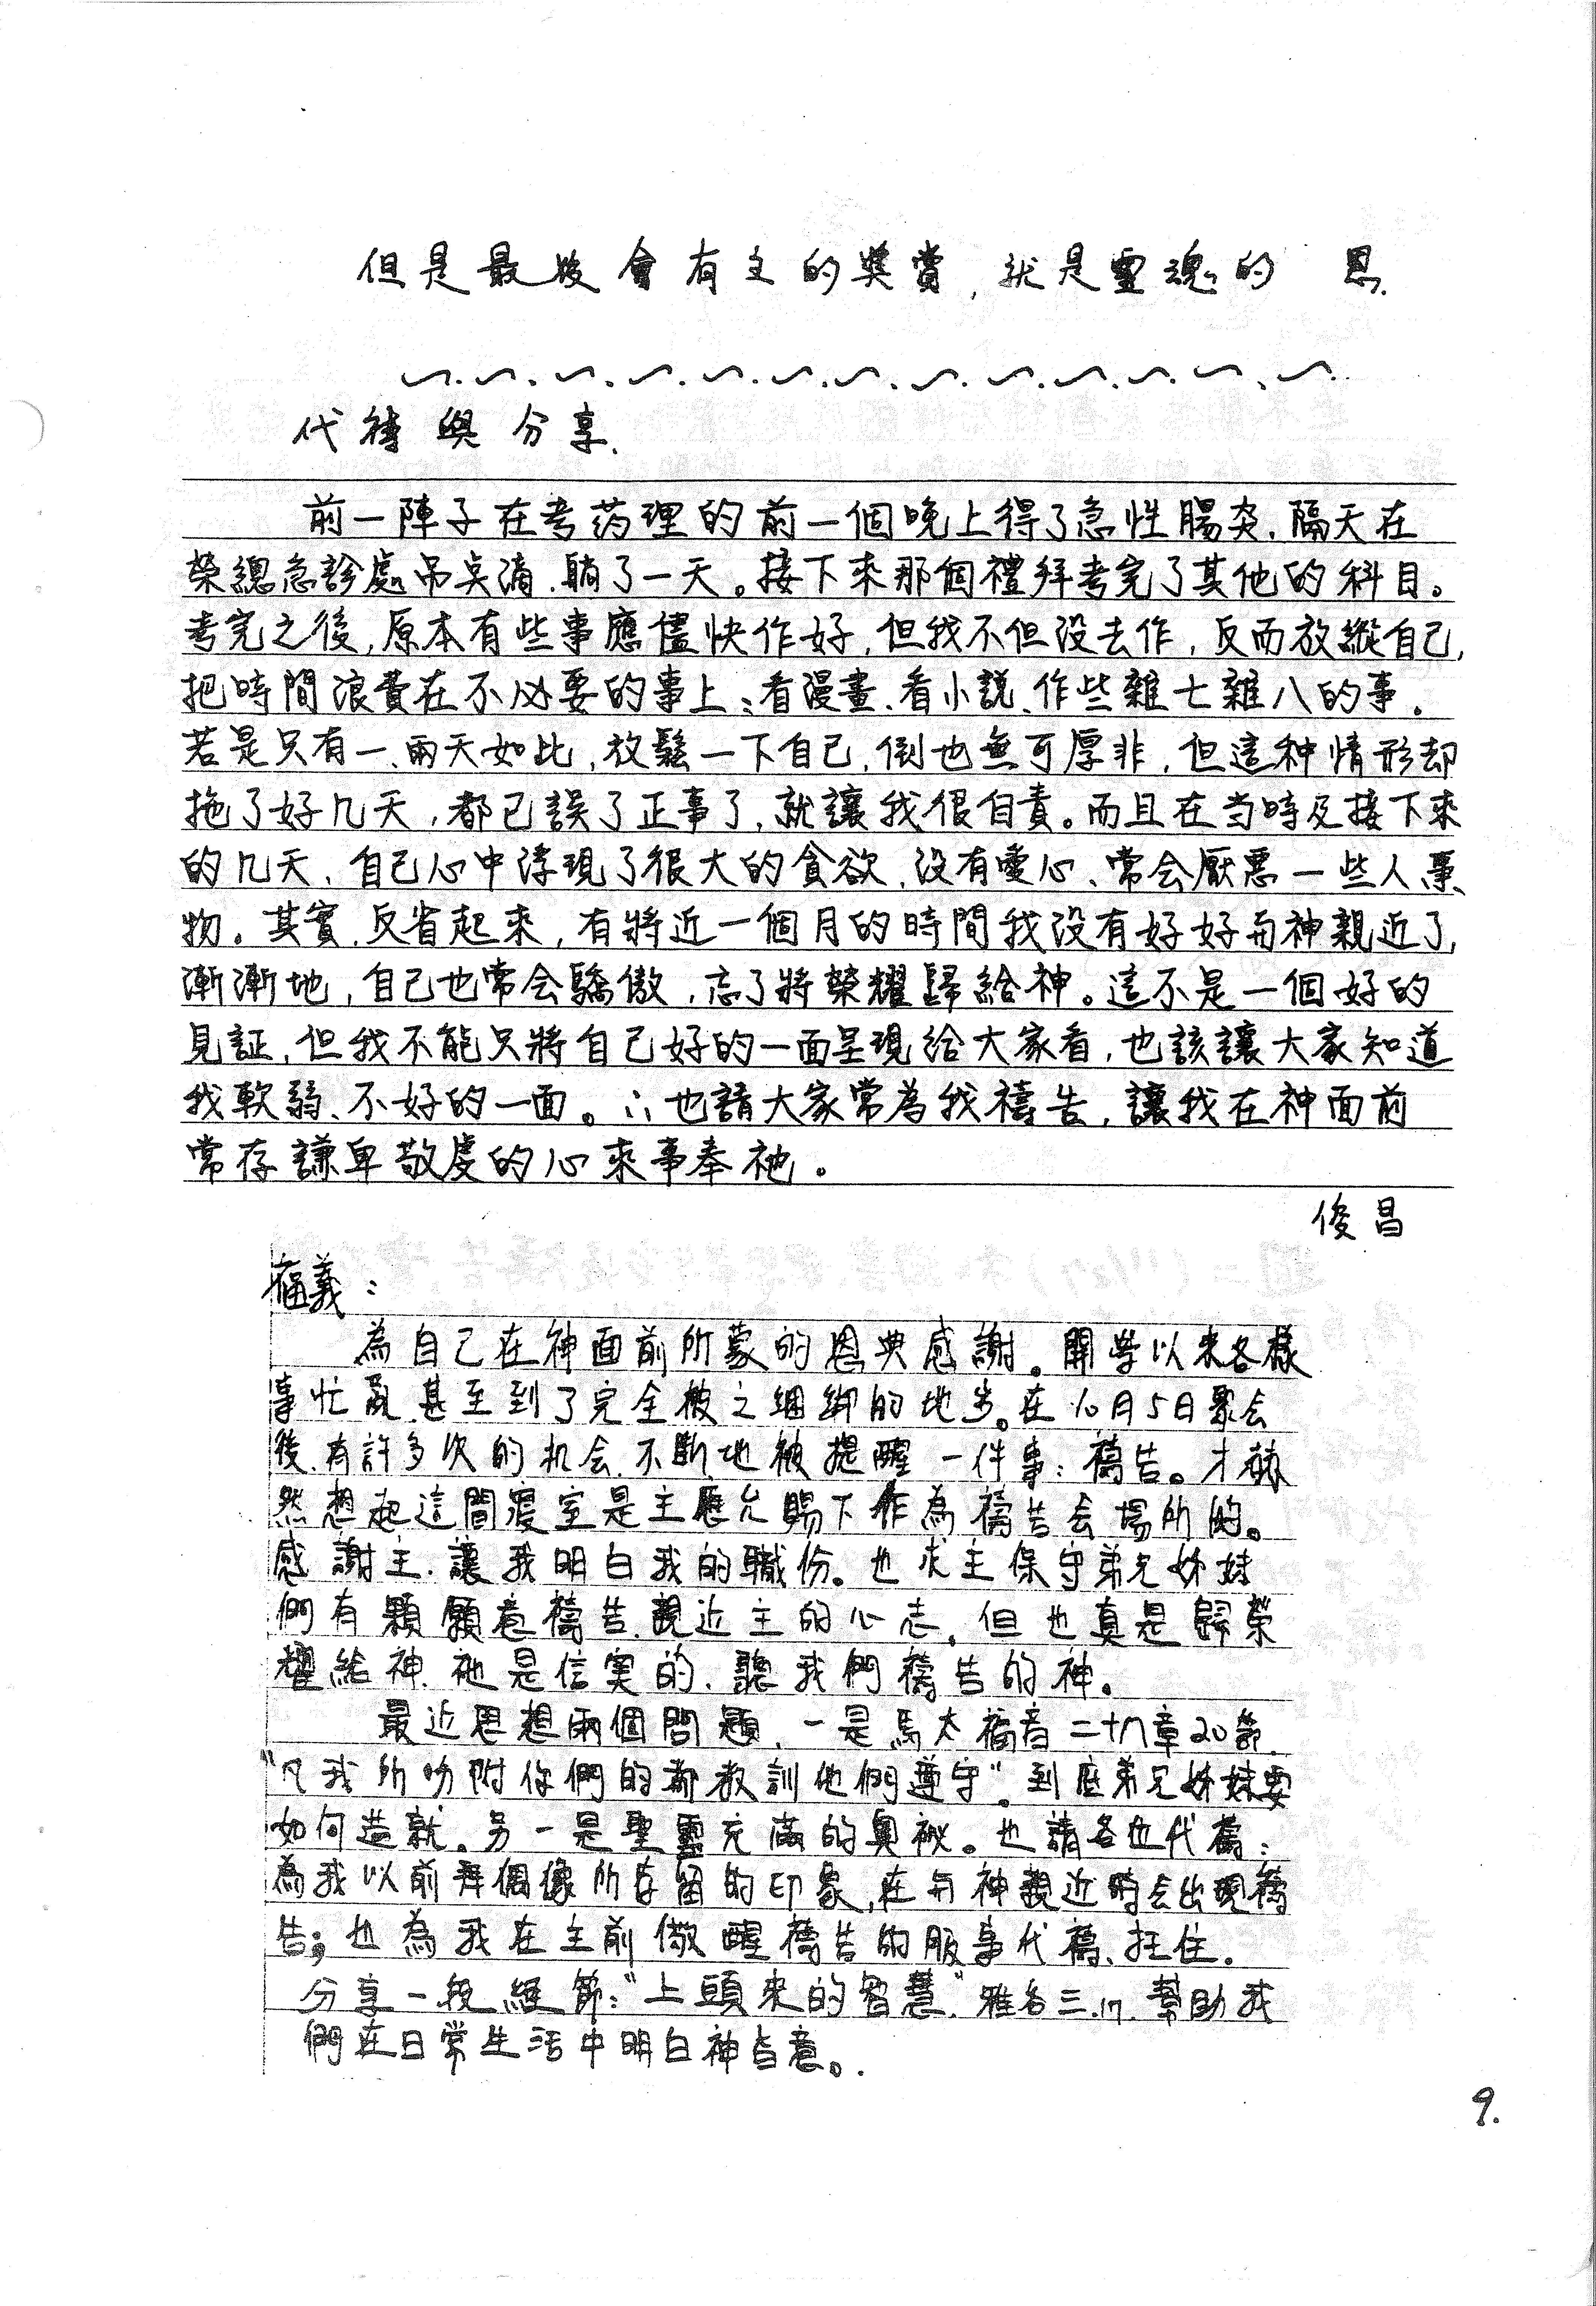 但是最後會有主的獎賞,就是靈魂的 恩.
代禱與分享.
前一陣子在考药理的前一個晚上得了急性腸炎.隔天在
榮總急診處吊点滴.躺了一天。接下來那個禮拜考完了其他的科目。
考完之後,原本有些事應儘快作好,但我不但没去作,反而放縱自己,
把時間浪費在不必要的事上:看漫畫、看小説、作些雜七雜八的事.
若是只有一、兩天如此,放鬆一下自己,倒也無可厚非,但這种情形却
拖了好几天,都已誤了正事了,就讓我很自責。而且在当時及接下來
的几天、自己心中浮現了很大的貪欲、没有愛心、常会厭惡一些人事、
物。其實,反省起來,有將近一個月的時間我没有好好与神親近了,
漸漸地,自己也常会驕傲,忘了將榮耀歸給神。這不是一個好的
見証,但我不能只將自己好的一面呈現給大家看,也該讓大家知道
我軟弱、不好的一面。∴也請大家常為我禱告,讓我在神面前
常存謙卑敬虔的心來事奉祂。
俊昌
福義:
為自己在神面前所蒙的恩典感謝。開學以來各樣
事忙亂.甚至到了完全被之綑綁的地步。在10月5日聚会
後.有許多次的机会.不斷地被提醒一件事:禱告。才赫
然想起這間寢室是主應允賜下作為禱告会場所的。
感謝主.讓我明白我的職份。也求主保守弟兄姊妹
們有顆願意禱告.親近主的心志.但也真是歸榮
耀給神.祂是信实的.聽我們禱告的神。
最近思想兩個問題.一是馬太福音二十八章20節.
"凡我所吩咐你們的都教訓他們遵守"。到底弟兄姊妹要
如何造就。另一是聖靈充滿的奧祕。也請各位代禱:
為我以前拜偶像所存留的印象,在与神親近時会出現禱
告;也為我在主前儆醒禱告的服事代禱、扛住.
分享一段經節:"上頭來的智慧".雅各三.17.幫助我
們在日常生活中明白神旨意。.
9.